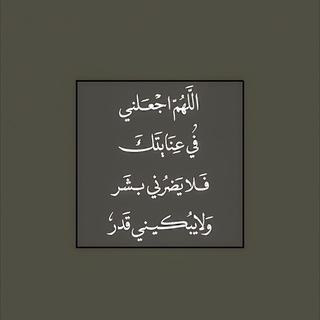 اللَّهُمّ اجْعَلني
فُي عِنَايتَكَ
فَلا يَضرُني بشَر
وَلايبُكيني قَدر